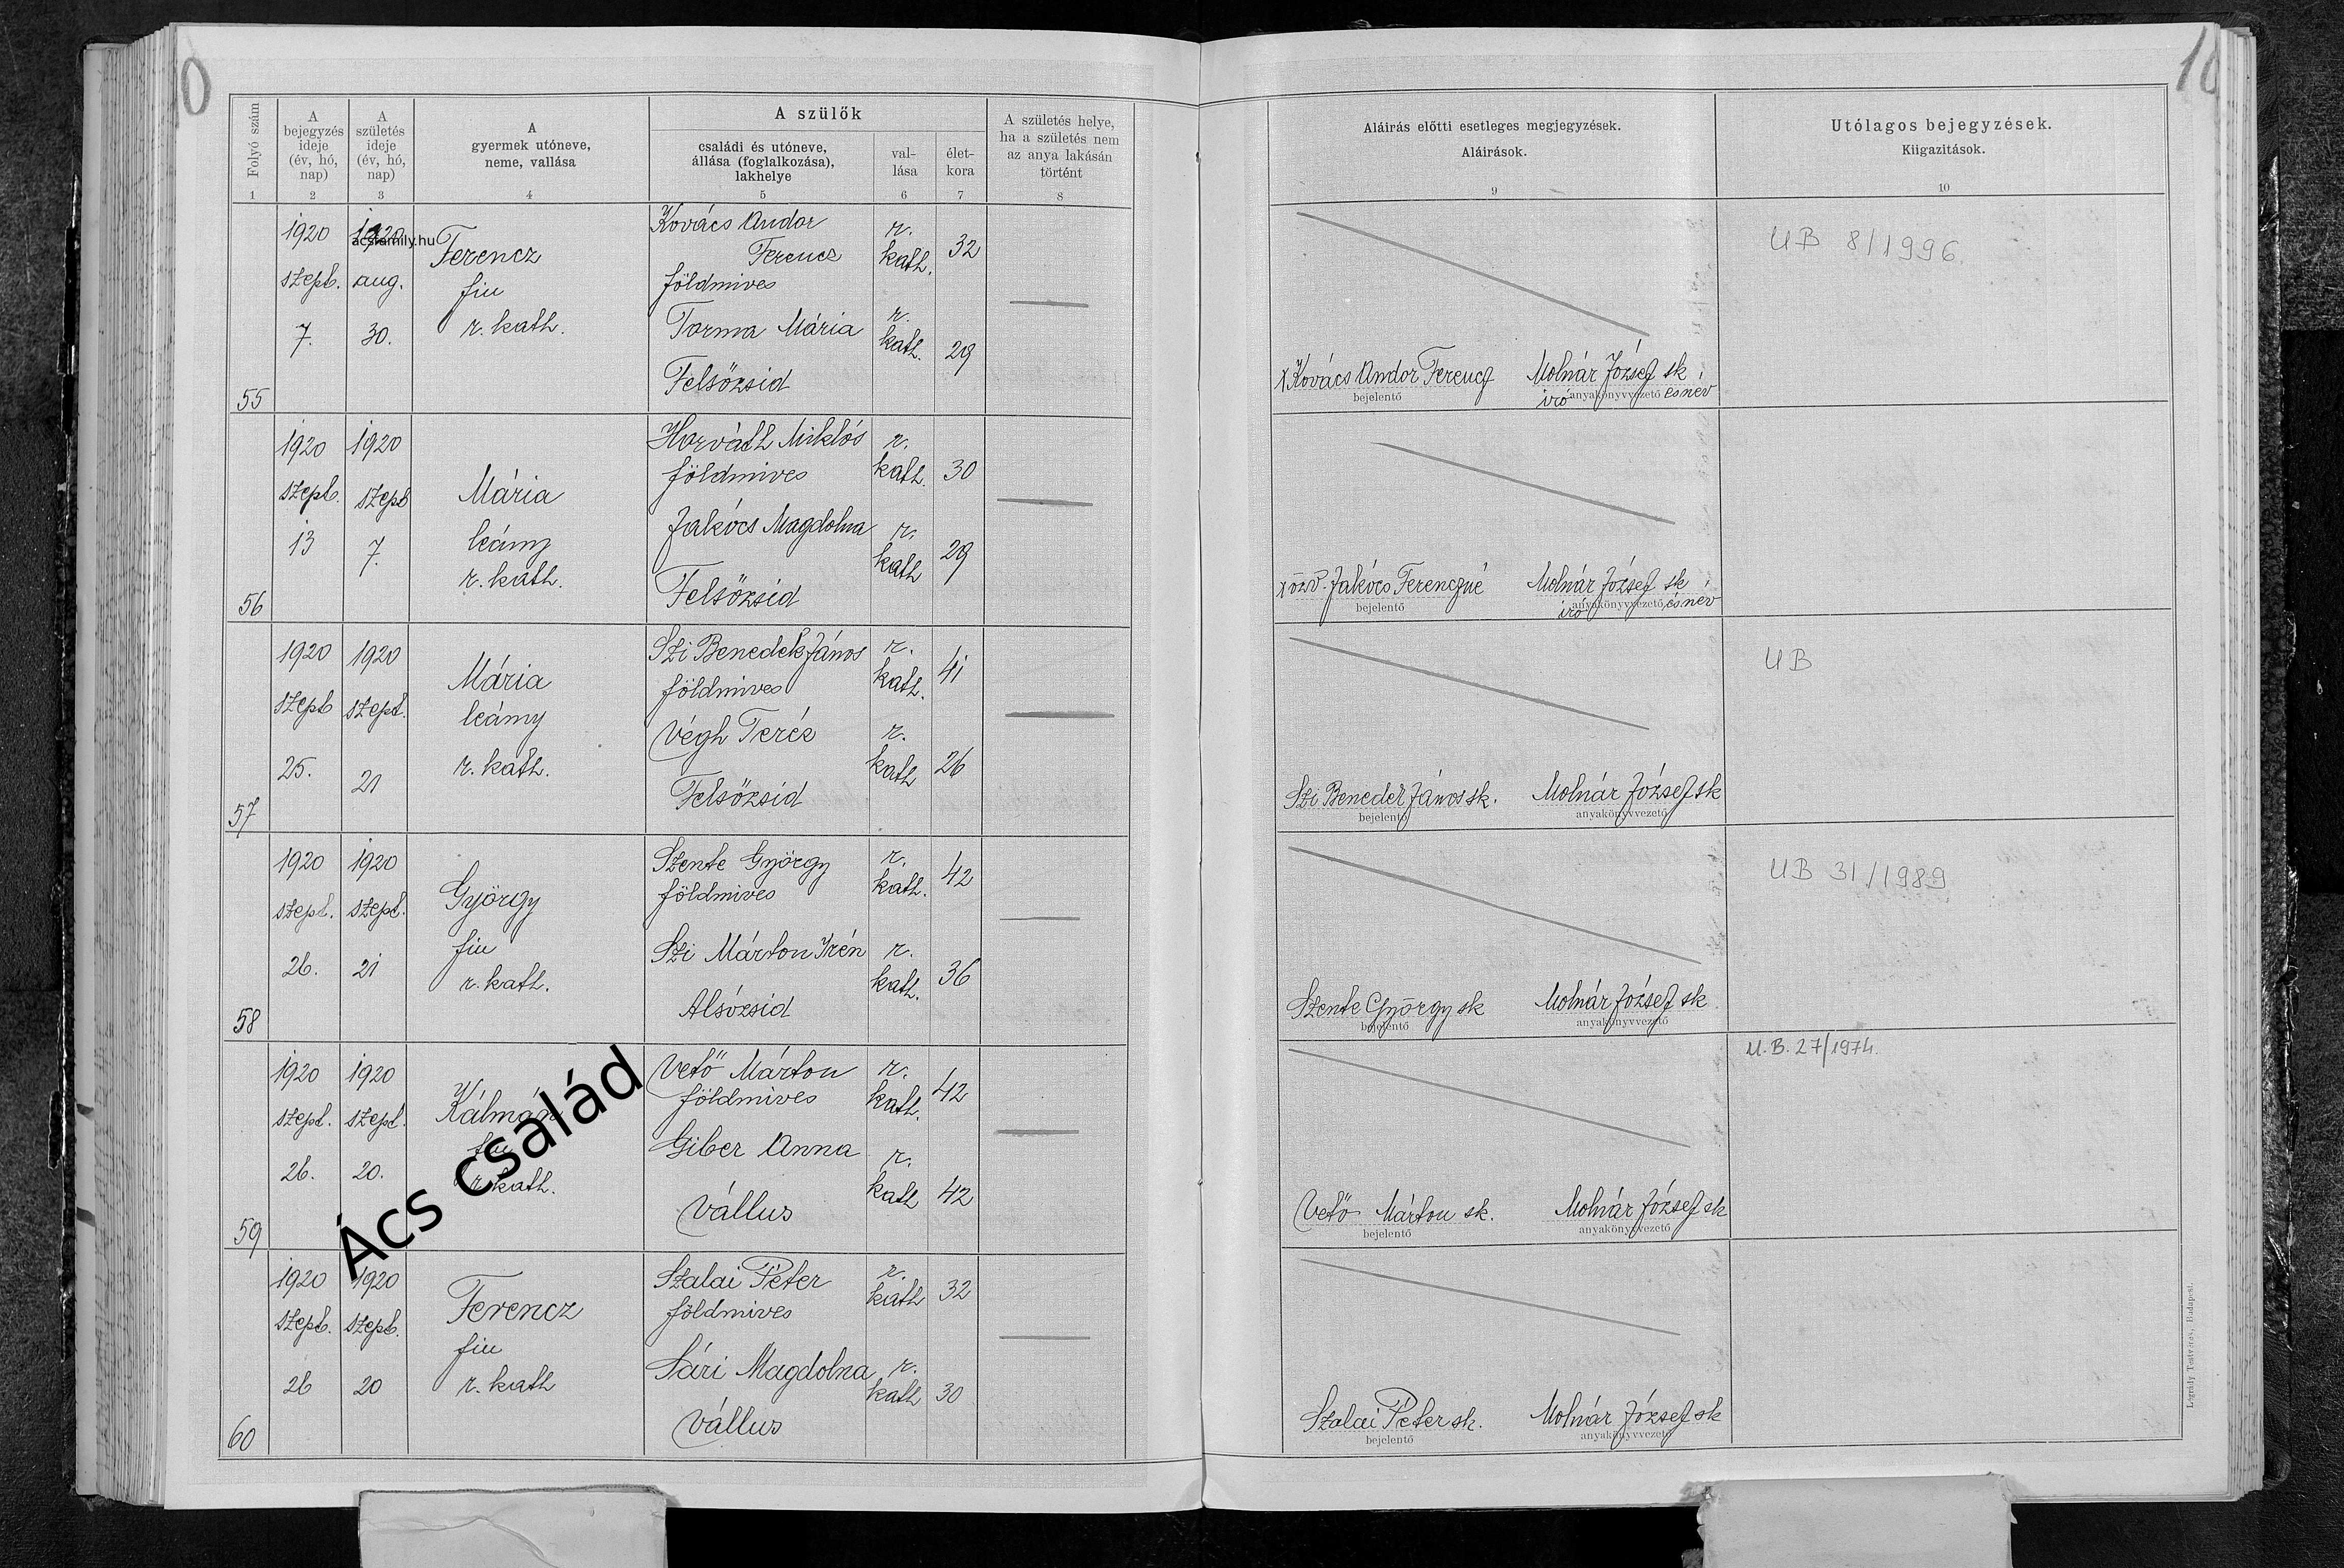 0
10
Folyó szám
A
bejegyzés
ideje
(év, hó,
nap)
A
születés
ideje
(év, hó,
nap)
A
gyermek utóneve,
neme, vallása
A szülők
családi és utóneve,
állása (foglalkozása),
lakhelye
val-
lása
élet-
kora
A születés helye,
ha a születés nem
az anya lakásán
történt
Aláirás előtti esetleges megjegyzések.
Aláirások.
Utólagos bejegyzések.
Kiigazitások.
1 2 3 4 5 6 7 8 9 10
55
1920
szept.
7.
1920
acsfamily.hu
aug.
30.
Ferencz
fiu
r. kath.
Kovács Andor
Ferencz
földmives
r.
kath.
32
Torma Mária
r.
kath.
29
Felsőzsid
x Kovács Andor Ferencz
bejelentő
Molnár József sk
iró anyakönyvvezető és név
UB 8/1996.
56
1920
szept.
13
1920
szept
7.
Mária
leány
r. kath.
Horváth Miklós
földmives
r.
kath.
30
Jakócs Magdolna
r.
kath
29
Felsőzsid
x özv. Jakócs Ferenczné
bejelentő
Molnár József sk
iró anyakönyvvezető és név
57
1920
szept
25.
1920
szept.
21
Mária
leány
r. kath.
Szi Benedek János
földmives
r.
kath.
41
Végh Teréz
r.
kath
26
Felsőzsid
Szi Benedek János sk.
bejelentő
Molnár József sk
anyakönyvvezető
UB
58
1920
szept.
26.
1920
szept.
21
György
fiu
r. kath.
Szente György
földmives
r.
kath.
42
Szi Márton Irén
r.
kath.
36
Alsózsid
Szente György sk
bejelentő
Molnár József sk
anyakönyvvezető
UB 31/1989
59
1920
szept.
26.
1920
szept.
20.
Kálmán
fiu
r. kath.
Vető Márton
földmives
r.
kath.
42
Giber Anna
r.
kath
42
Vállus
Vető Márton sk.
bejelentő
Molnár József sk
anyakönyvvezető
U.B. 27/1974.
Ács család
60
1920
szept.
26
1920
szept.
20
Ferencz
fiu
r. kath
Szalai Péter
földmives
r.
kath
32
Sári Magdolna
r.
kath
30
Vállus
Szalai Péter sk.
bejelentő
Molnár József sk
anyakönyvvezető
Légrády Testvérek, Budapest.